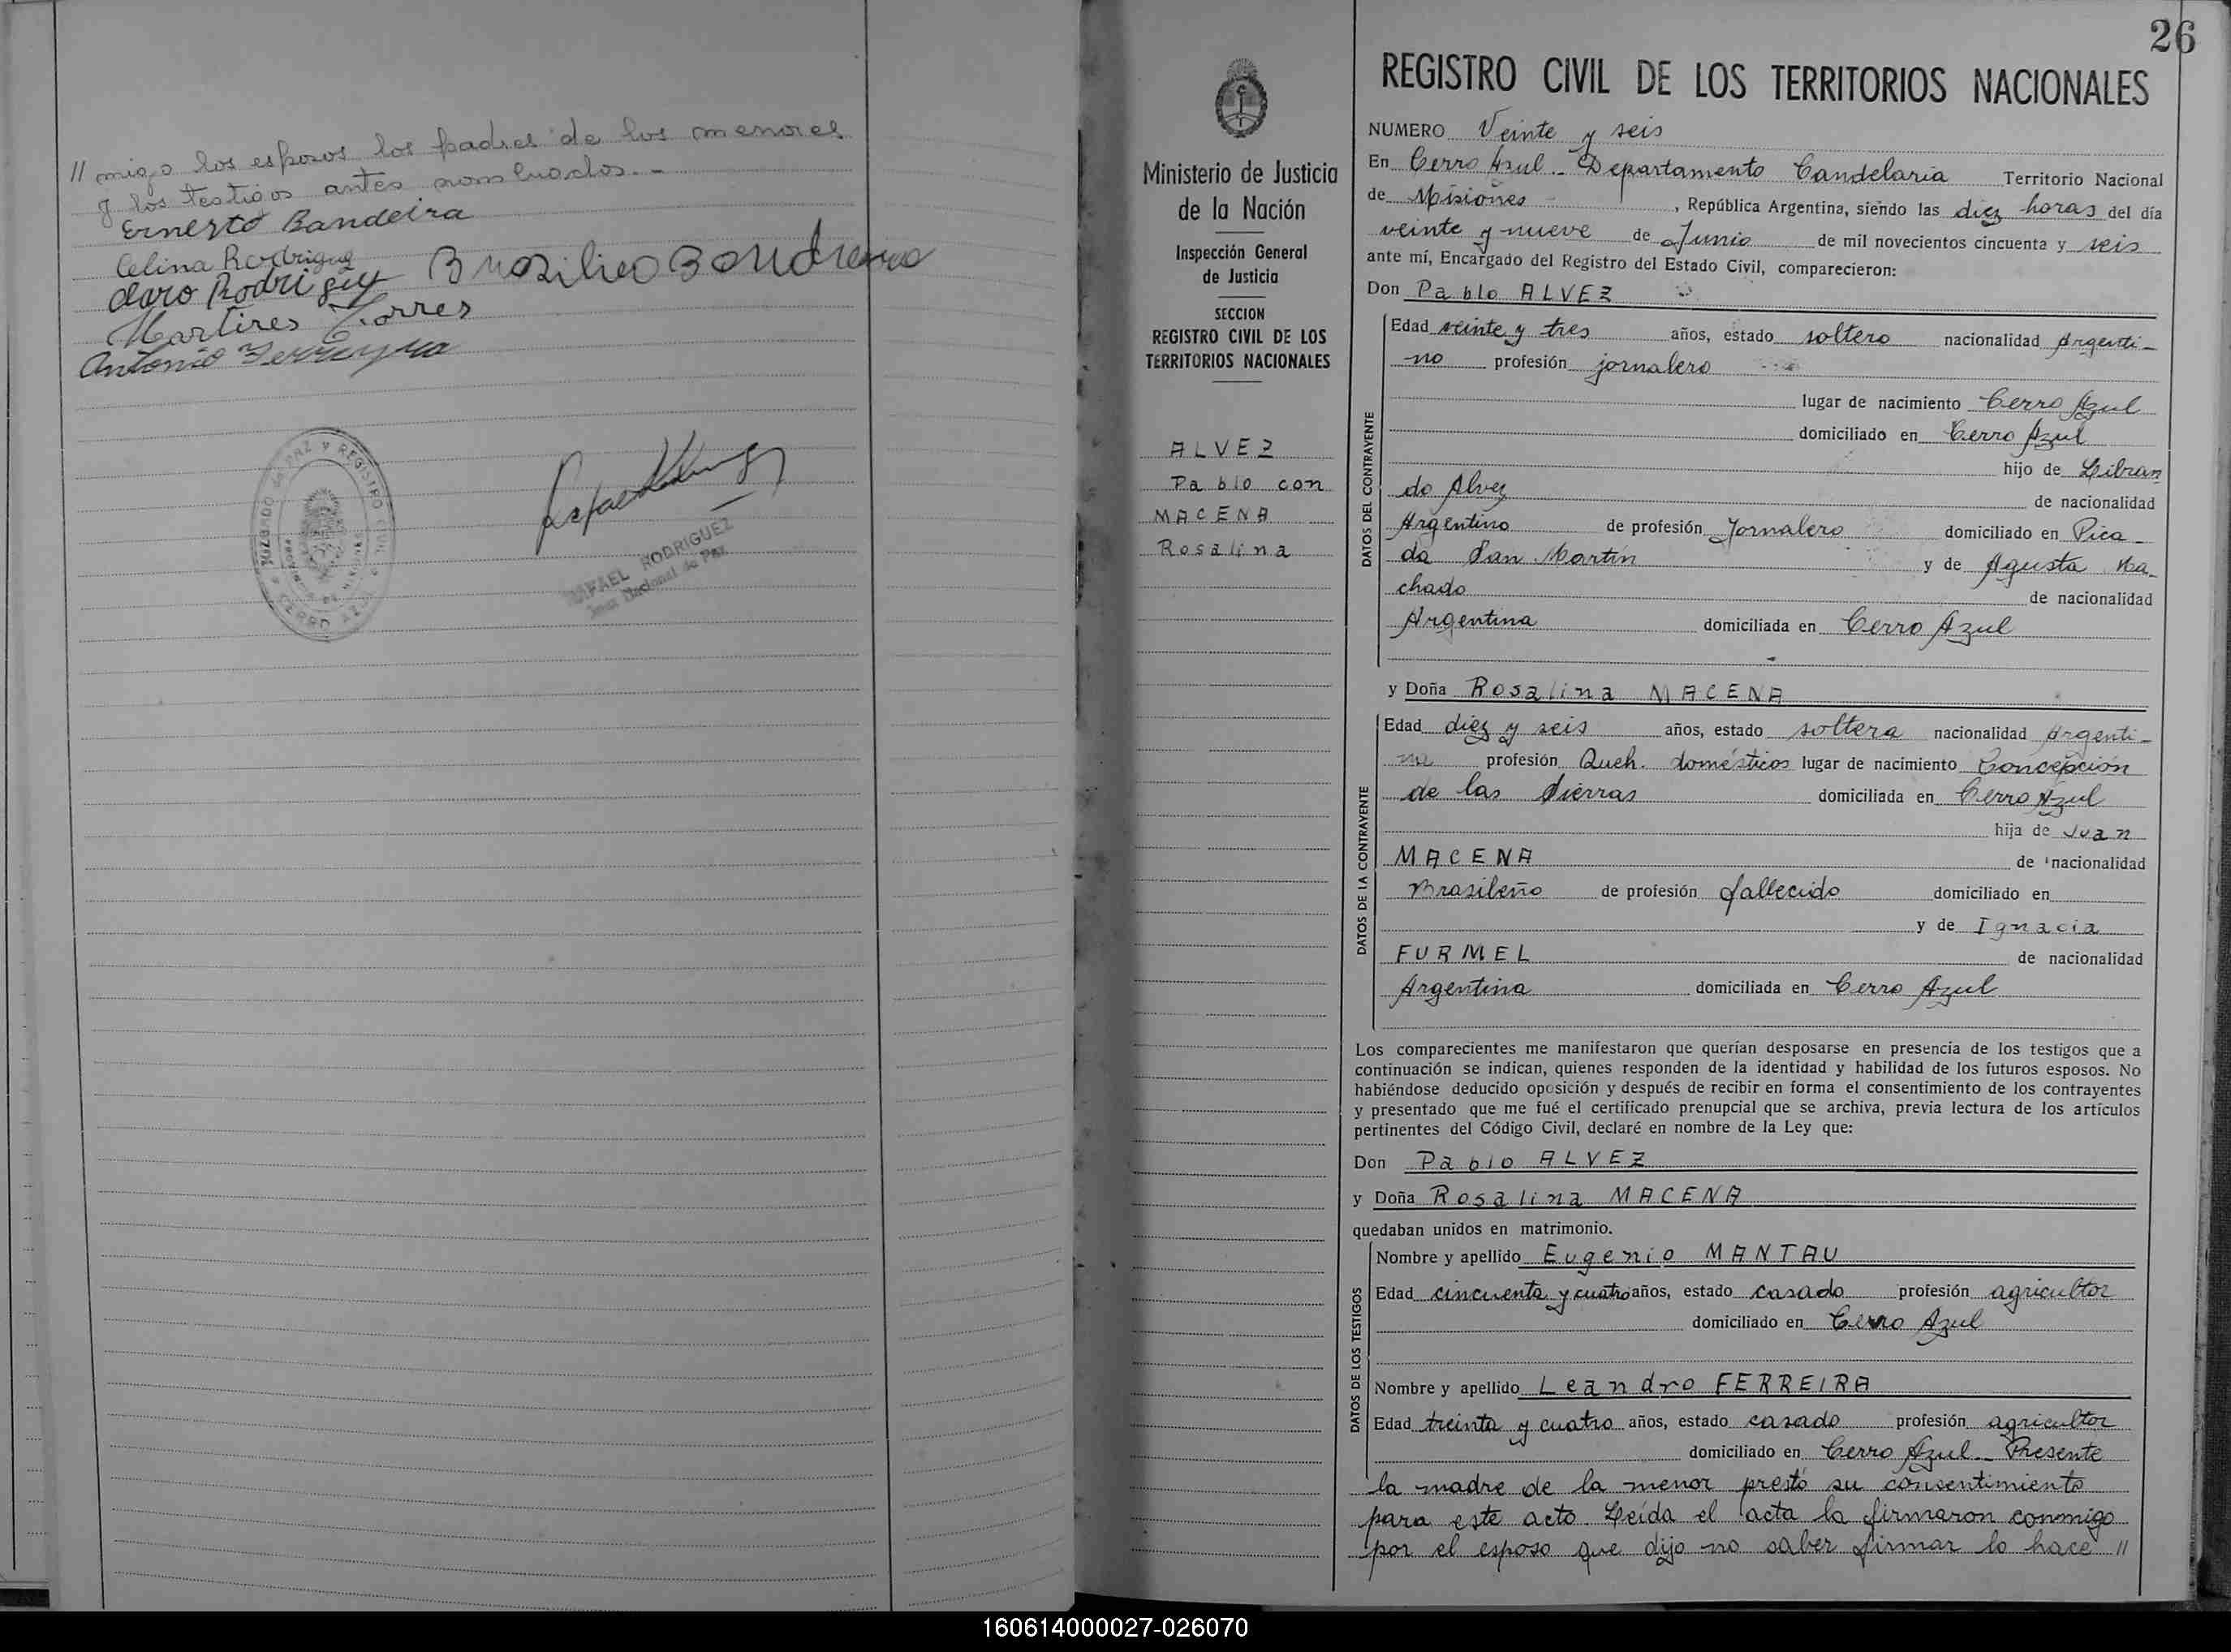 // migo los esposos los padres de los menores
y los testigos antes nombrados.-
Ernesto Bandeira
Celina Rodriguez
Claro Rodriguez
Martires Torres
Antonio Ferreyra
JUZGADO de PAZ Y REGISTRO CIVIL
CERRO AZUL
RAFAEL RODRIGUEZ
Juez Nacional de Paz
26
Ministerio de Justicia
de la Nación
Inspección General
de Justicia
SECCION
REGISTRO CIVIL DE LOS
TERRITORIOS NACIONALES
ALVEZ
Pablo con
MACENA
Rosalina
REGISTRO CIVIL DE LOS TERRITORIOS NACIONALES
NUMERO Veinte y seis
En Cerro Azul - Departamento Candelaria Territorio Nacional
de Misiones, República Argentina, siendo las diez horas del día
veinte y nueve de Junio de mil novecientos cincuenta y seis
ante mí, Encargado del Registro del Estado Civil, comparecieron:
Don Pablo ALVEZ
DATOS DEL CONTRAYENTE
Edad veinte y tres años, estado soltero nacionalidad Argenti-
no profesión jornalero
lugar de nacimiento Cerro Azul
domiciliado en Cerro Azul
hijo de Libran
do Alvez de nacionalidad
Argentino de profesión Jornalero domiciliado en Pica-
da San Martín y de Agusta Ma-
chado de nacionalidad
Argentina domiciliada en Cerro Azul
y Doña Rosalina MACENA
DATOS DE LA CONTRAYENTE
Edad diez y seis años, estado soltera nacionalidad Argenti-
na profesión Queh. domésticos lugar de nacimiento Concepción
de las Sierras domiciliada en Cerro Azul
hija de Juan
MACENA de nacionalidad
Brasileño de profesión fallecido domiciliado en
y de Ignacia
FURMEL de nacionalidad
Argentina domiciliada en Cerro Azul
Los comparecientes me manifestaron que querían desposarse en presencia de los testigos que a
continuación se indican, quienes responden de la identidad y habilidad de los futuros esposos. No
habiéndose deducido oposición y después de recibir en forma el consentimiento de los contrayentes
y presentado que me fué el certificado prenupcial que se archiva, previa lectura de los artículos
pertinentes del Código Civil, declaré en nombre de la Ley que:
Don Pablo ALVEZ
y Doña Rosalina MACENA
quedaban unidos en matrimonio.
DATOS DE LOS TESTIGOS
Nombre y apellido Eugenio MANTAU
Edad cincuenta y cuatro años, estado casado profesión agricultor
domiciliado en Cerro Azul
Nombre y apellido Leandro FERREIRA
Edad treinta y cuatro años, estado casado profesión agricultor
domiciliado en Cerro Azul - Presente
la madre de la menor prestó su consentimiento
para este acto. Leída el acta la firmaron conmigo
por el esposo que dijo no saber firmar lo hace //
160614000027-026070